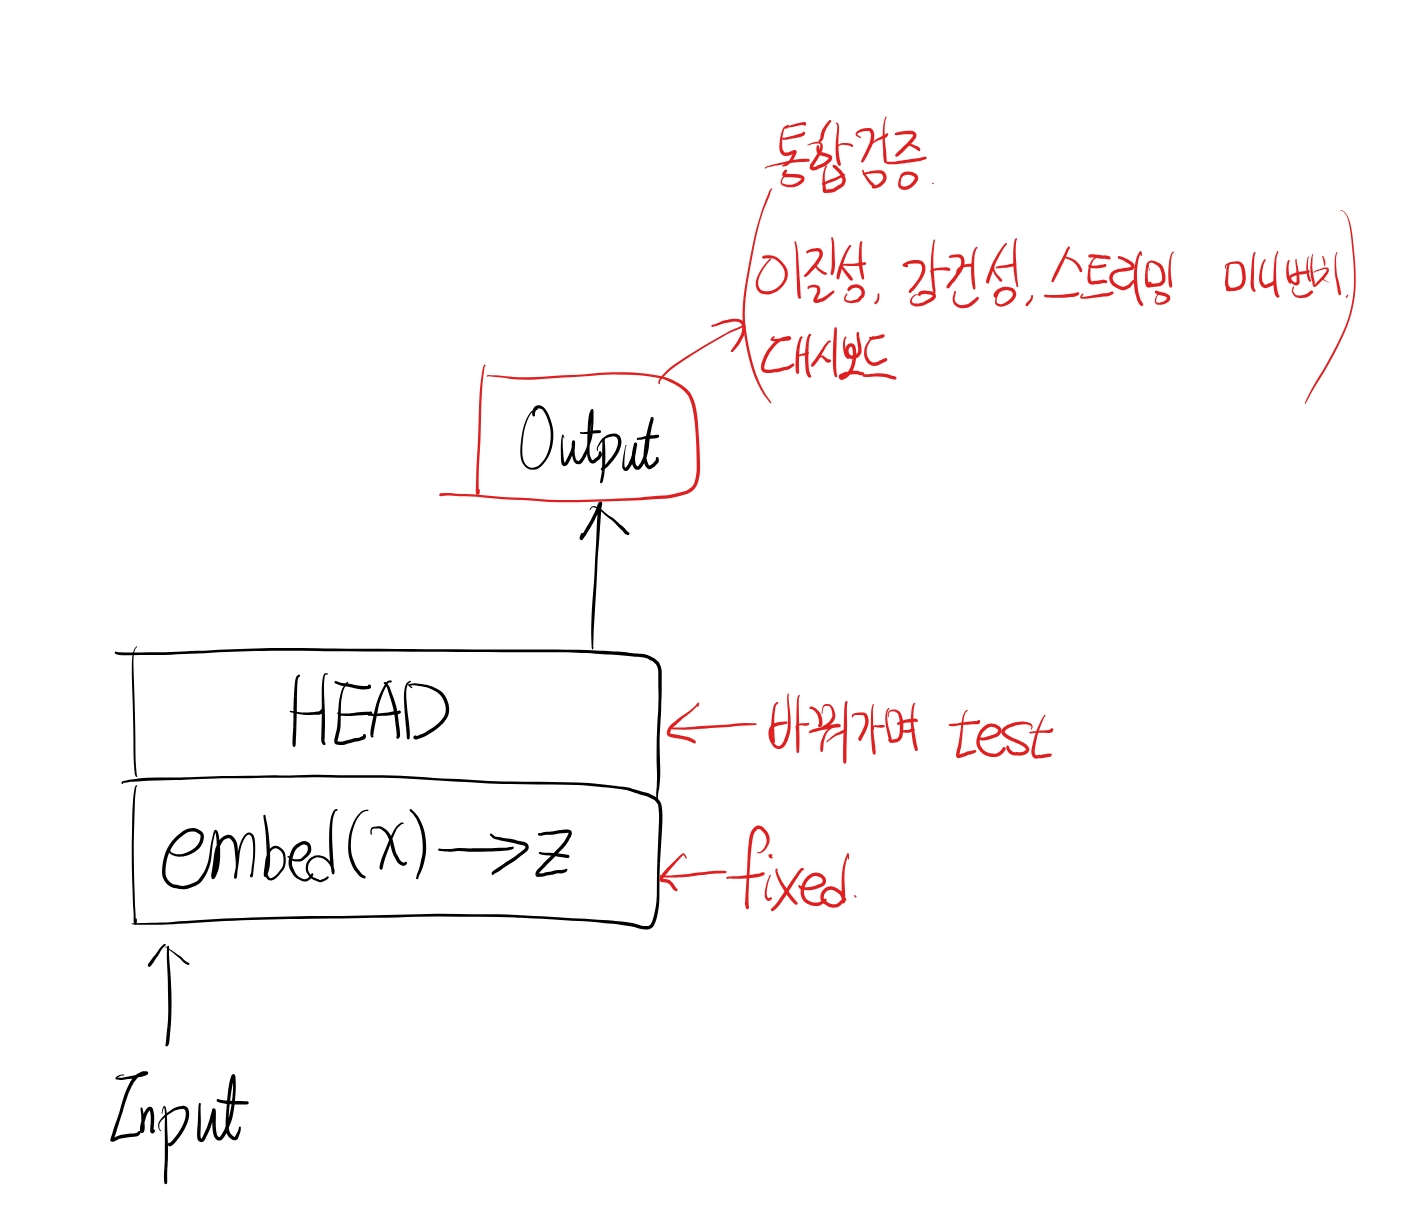 통합검증.
이질성, 강건성, 스트리밍 미니벤치.
대시보드
Output
HEAD
바꿔가며 test
embed(x) → z
fixed.
Input